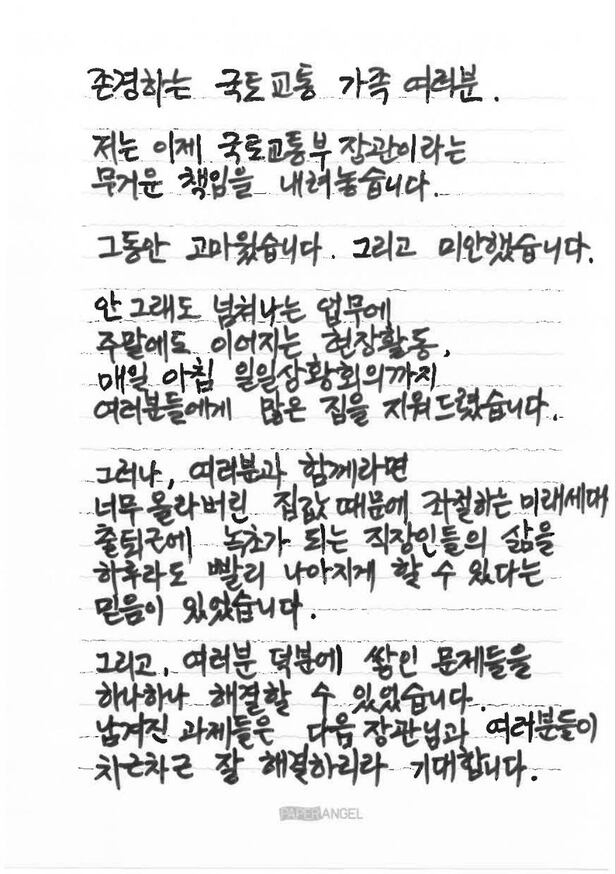 존경하는 국토교통 가족 여러분.
저는 이제 국토교통부 장관이라는
무거운 책임을 내려놓습니다.
그동안 고마웠습니다. 그리고 미안했습니다.
안 그래도 넘쳐나는 업무에
주말에도 이어지는 현장활동,
매일 아침 일일상황회의까지
여러분들에게 많은 짐을 지워드렸습니다.
그러나, 여러분과 함께라면
너무 올라버린 집값 때문에 좌절하는 미래세대
출퇴근에 녹초가 되는 직장인들의 삶을
하루라도 빨리 나아지게 할 수 있다는
믿음이 있었습니다.
그리고, 여러분 덕분에 쌓인 문제들을
하나하나 해결할 수 있었습니다.
남겨진 과제들은 다음 장관님과 여러분들이
차근차근 잘 해결하리라 기대합니다.
PAPERANGEL